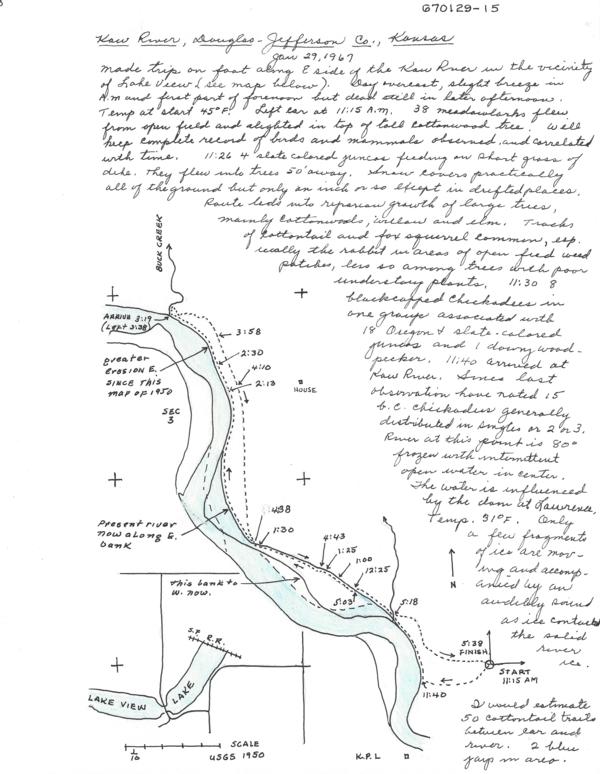 670129-15
Kaw River, Douglas-Jefferson Co., Kansas
Jan 29, 1967
Made trip on foot along E side of the Kaw River in the vicinity
of Lake View (see map below). Day overcast, slight breeze in
A.M and first part of forenoon but dead still in later afternoon.
Temp at start 45°F. Left car at 11:15 A.M. 38 meadowlarks flew
from open field and alighted in top of tall cottonwood tree. Will
keep complete record of birds and mammals observed, and correlated
with time. 11:26 4 slate colored juncos feeding on short grass of
dike. They flew into trees 50' away. Snow covers practically
all of the ground but only an inch or so except in drifted places.
Route leds into riparian growth of large trees,
mainly cottonwoods, willow and elm. Tracks
of cottontail and fox squirrel common, esp-
ecially the rabbit in areas of open field weed
patches, less so among trees with poor
understory plants. 11:30 8
blackcapped chickadees in
one group associated with
18 Oregon & slate-colored
juncos and 1 downy wood-
pecker. 11:40 arrived at
Kaw River. Since last
observation have noted 15
b.c. chickadees generally
distributed in singles or 2 or 3.
River at this point is 80%
frozen with intermittent
open water in center.
The water is influenced
by the dam at Lawrence.
Temp. 31°F. Only
a few fragments
of ice are mov-
ing and accomp-
anied by an
audibly sound
as ice contacts
the solid
river
ice.
I would estimate
50 cottontail trails
between car and
river. 2 blue
jays in area.
BUCK CREEK
ARRIVE 3:19
(Left 3:38)
3:58
2:30
4:10
2:13
Greater
EROSION E.
SINCE THIS
MAP OF 1950
HOUSE
SEC
3
4:38
1:30
Present river
now along E.
bank
4:43
1:25
1:00
12:25
This bank to
W. now.
5:03
5:18
N
5:38
FINISH
START
11:15 AM
11:40
S.F. R.R.
LAKE
LAKE VIEW
1/10
SCALE
USGS 1950
K.P.L